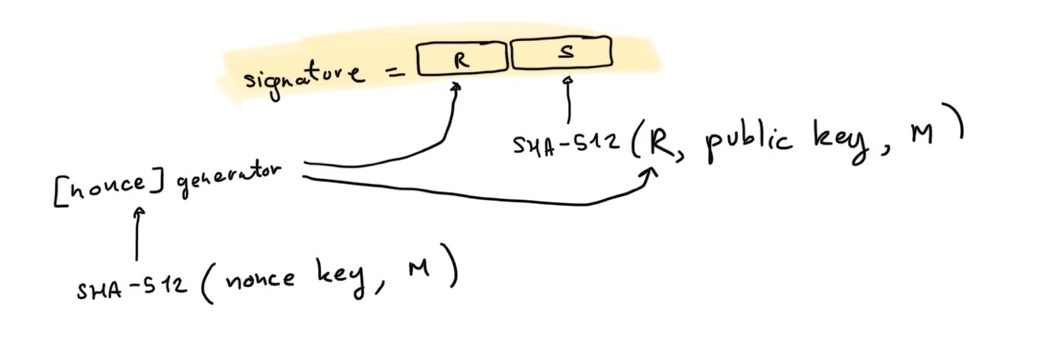 signature = R S
SHA-512 (R, public key, M)
[nonce] generator
SHA-512 (nonce key, M)